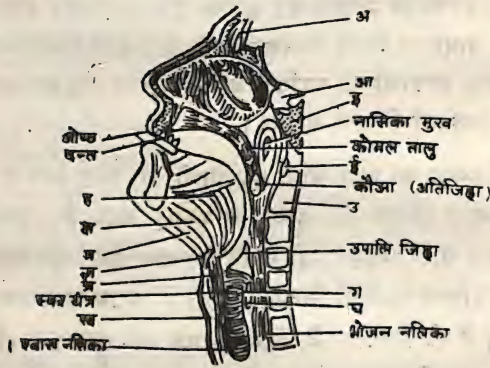 अ
आ
इ
नासिका मुख
कोमल तालु
ई
कौआ (अतिजिह्वा)
उ
उपालि जिह्वा
ग
घ
भोजन नलिका
ओष्ठ
दन्त
ह
क्ष
त्र
स्वर यंत्र
ख
श्वास नलिका